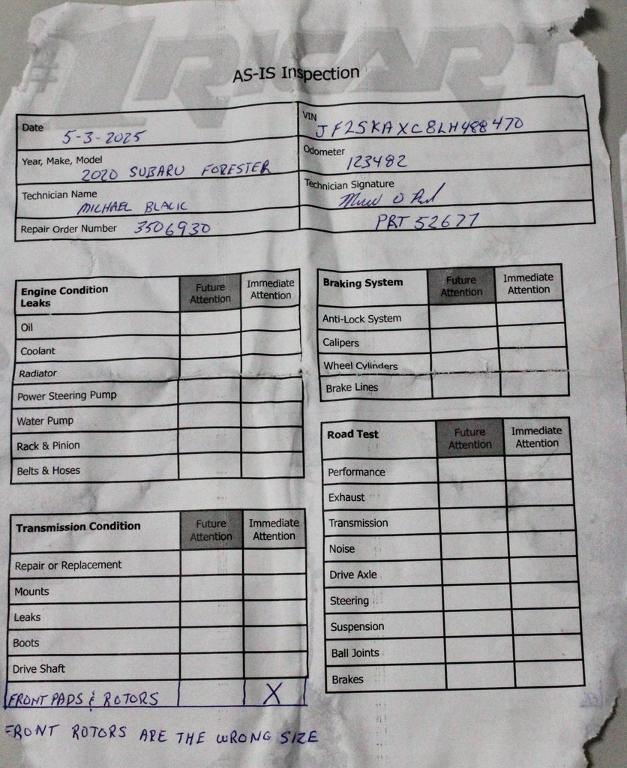 #1 RICART
AS-IS Inspection
Date 5-3-2025
VIN JF2SKAXC8LH488470
Year, Make, Model 2020 SUBARU FORESTER
Odometer 123482
Technician Name MICHAEL BLACK
Technician Signature
Repair Order Number 3506930
PRT 52677
Engine Condition Leaks Future Attention Immediate Attention
Oil
Coolant
Radiator
Power Steering Pump
Water Pump
Rack & Pinion
Belts & Hoses
Transmission Condition Future Attention Immediate Attention
Repair or Replacement
Mounts
Leaks
Boots
Drive Shaft
FRONT PADS & ROTORS X
FRONT ROTORS ARE THE WRONG SIZE
Braking System Future Attention Immediate Attention
Anti-Lock System
Calipers
Wheel Cylinders
Brake Lines
Road Test Future Attention Immediate Attention
Performance
Exhaust
Transmission
Noise
Drive Axle
Steering
Suspension
Ball Joints
Brakes